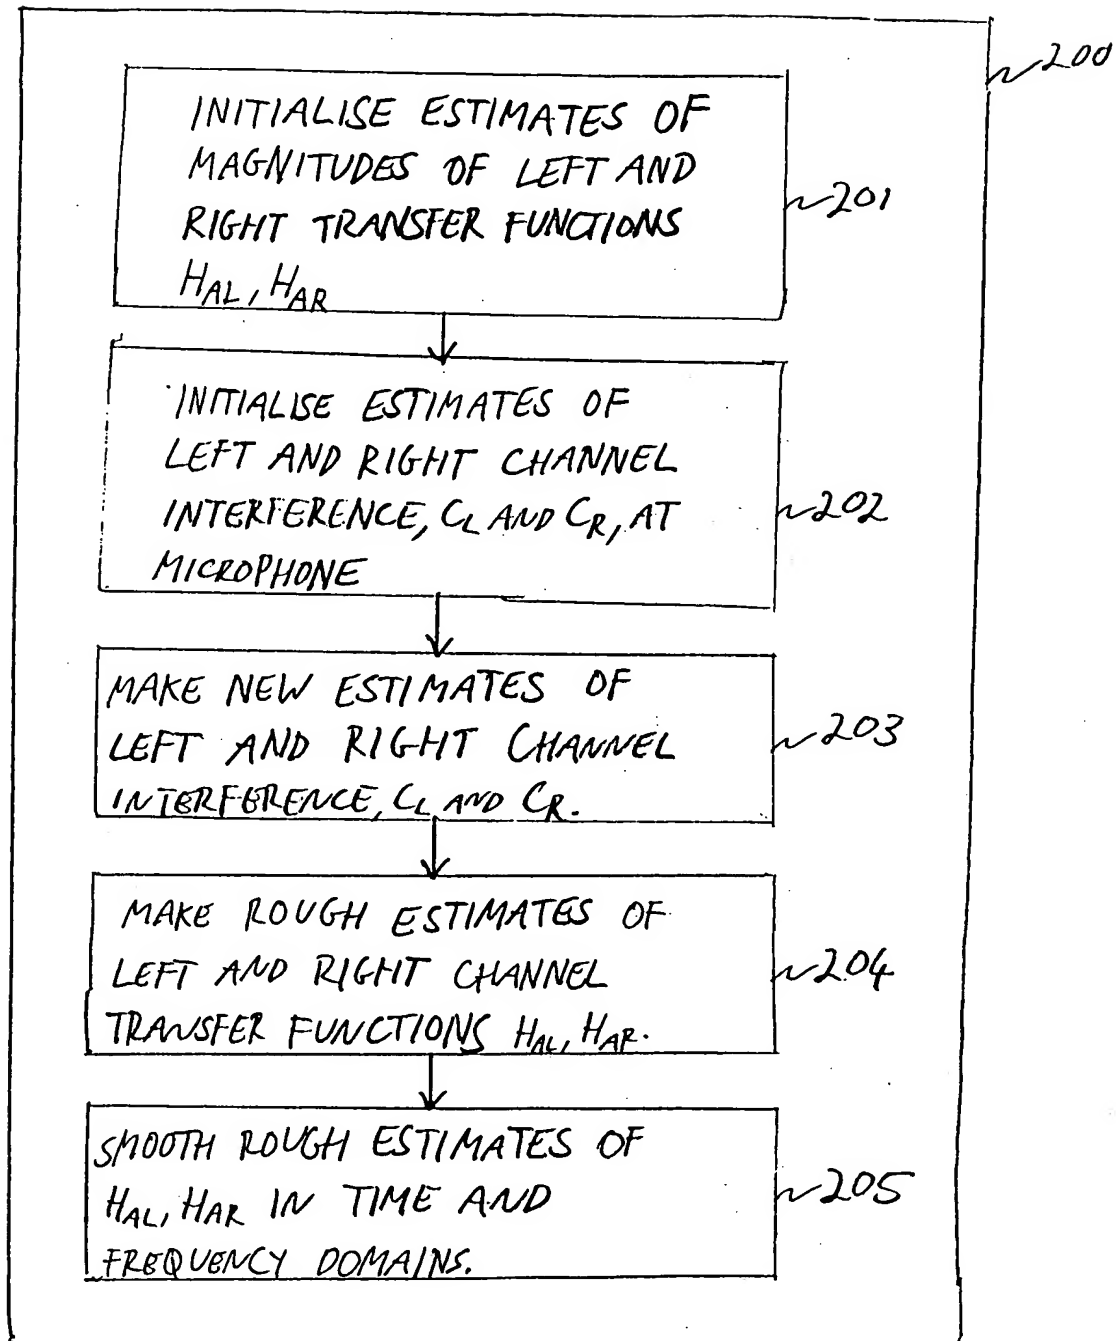 200
INITIALISE ESTIMATES OF
MAGNITUDES OF LEFT AND
RIGHT TRANSFER FUNCTIONS
HAL, HAR
201
INITIALISE ESTIMATES OF
LEFT AND RIGHT CHANNEL
INTERFERENCE, CL AND CR, AT
MICROPHONE
202
MAKE NEW ESTIMATES OF
LEFT AND RIGHT CHANNEL
INTERFERENCE, CL AND CR.
203
MAKE ROUGH ESTIMATES OF
LEFT AND RIGHT CHANNEL
TRANSFER FUNCTIONS HAL, HAR.
204
SMOOTH ROUGH ESTIMATES OF
HAL, HAR IN TIME AND
FREQUENCY DOMAINS.
205